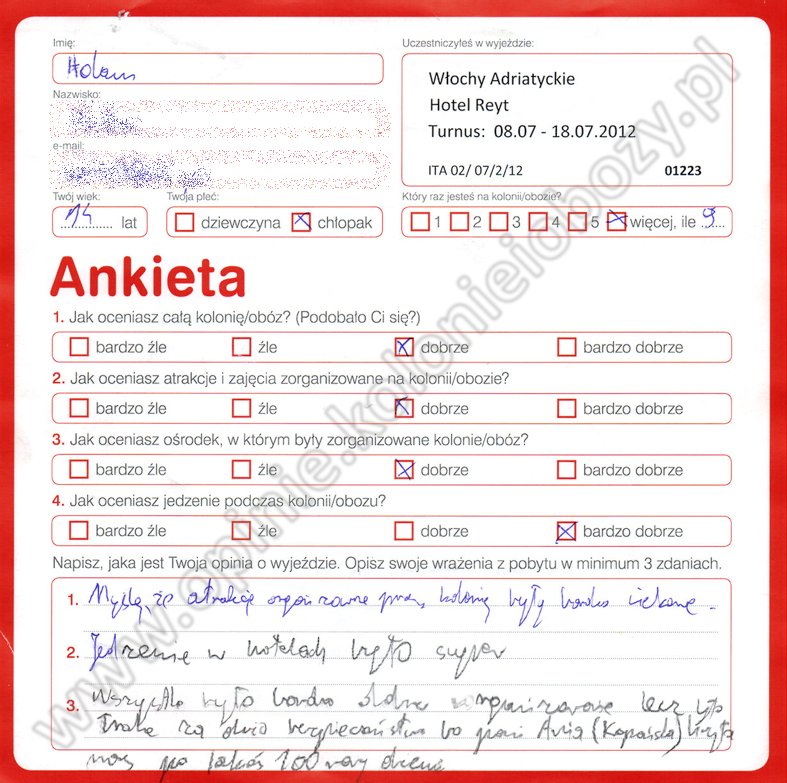 Imię:
Uczestniczyłeś w wyjeździe:
Nazwisko:
Włochy Adriatyckie
Hotel Reyt
Turnus: 08.07 - 18.07.2012
e-mail:
ITA 02/ 07/2/12 01223
Twój wiek: Twoja płeć: Który raz jesteś na kolonii/obozie?
14 lat dziewczyna chłopak 1 2 3 4 5 więcej, ile 9
Ankieta
1. Jak oceniasz całą kolonię/obóz? (Podobało Ci się?)
bardzo źle źle dobrze bardzo dobrze
2. Jak oceniasz atrakcje i zajęcia zorganizowane na kolonii/obozie?
bardzo źle źle dobrze bardzo dobrze
3. Jak oceniasz ośrodek, w którym były zorganizowane kolonie/obóz?
bardzo źle źle dobrze bardzo dobrze
4. Jak oceniasz jedzenie podczas kolonii/obozu?
bardzo źle źle dobrze bardzo dobrze
Napisz, jaka jest Twoja opinia o wyjeździe. Opisz swoje wrażenia z pobytu w minimum 3 zdaniach.
1. Myślę, że atrakcje przez były bardzo ciekawe.
2. Jedzenie w hotelach było super
3. Wszystko było bardzo dobrze zorganizowane lecz
za dużo bezpieczeństwa bo pani Ania
nas po jakieś 100 razy
www.opinie.kolonieiobozy.pl